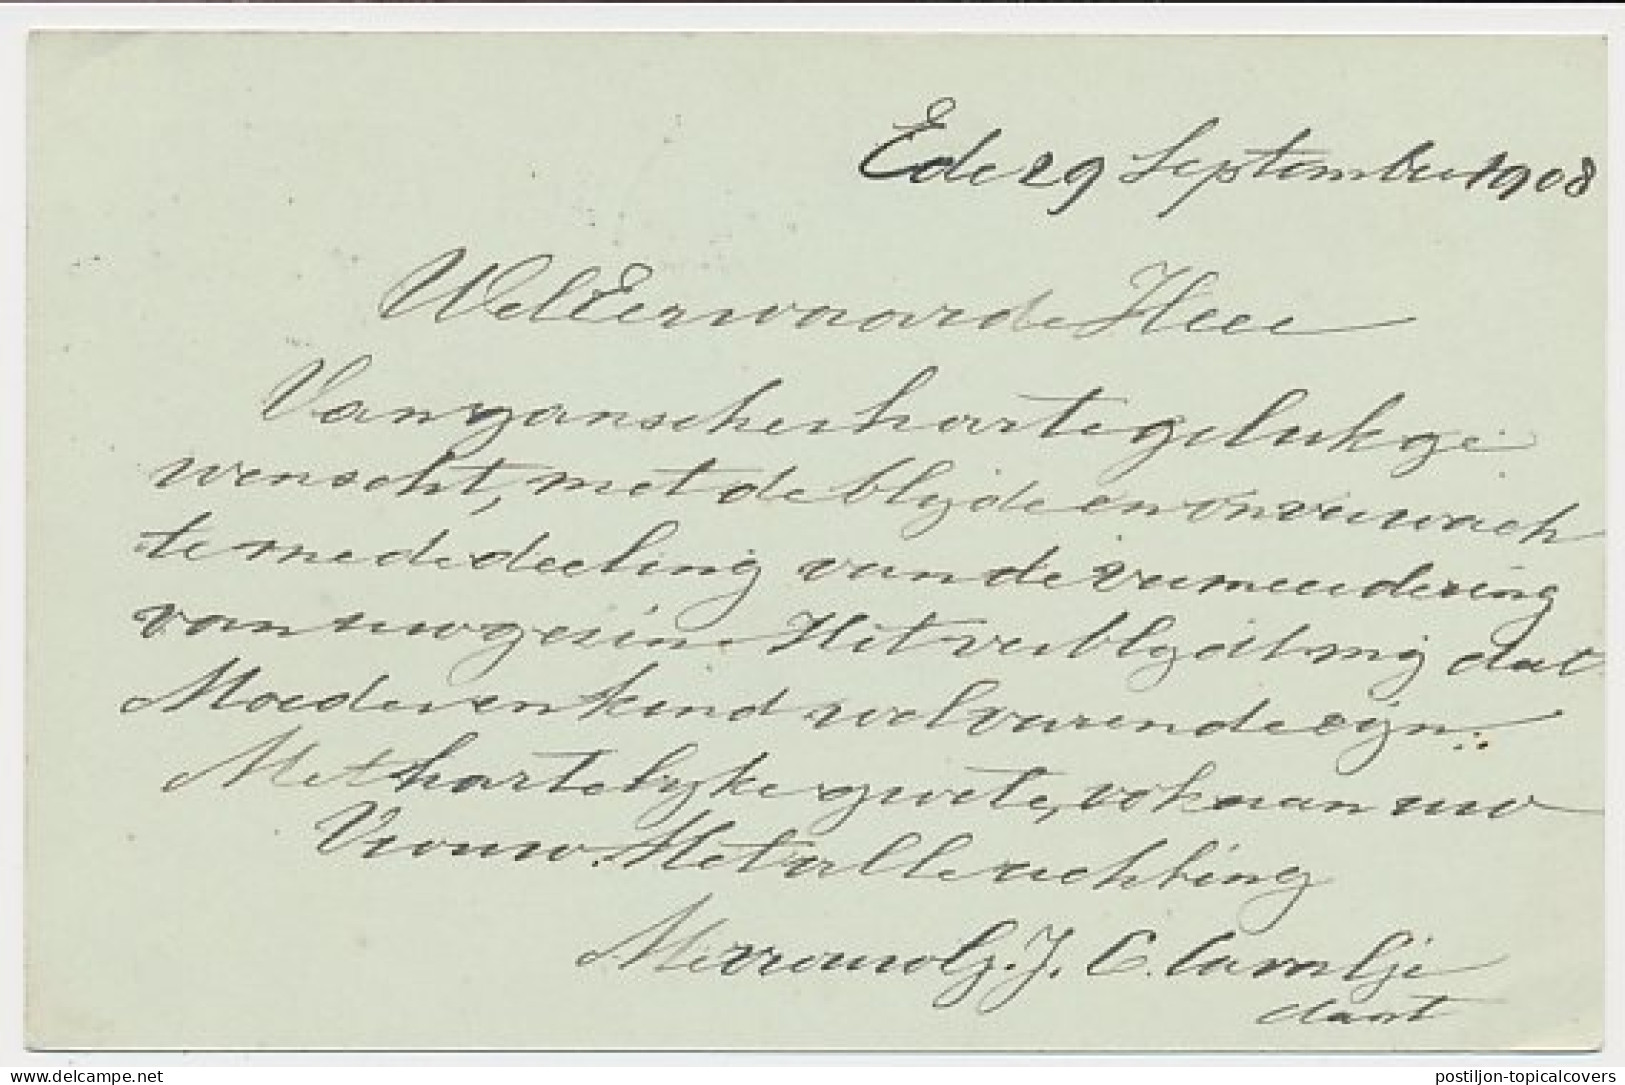 Ede 29 September 1908
WelEerwaarde Heer
Van ganscher harte gelukge
wenscht, met de blyde en onverwach
te mededeeling van de vermeerdering
van uw gezin. Het verblydt mij dat
Moeder en kind welvarende zijn.
Met hartelyke groete, ook aan uw
Vrouw. Met alle achting
Mevrouw G. J. C.
postiljon-topicalcovers
delcampe.net